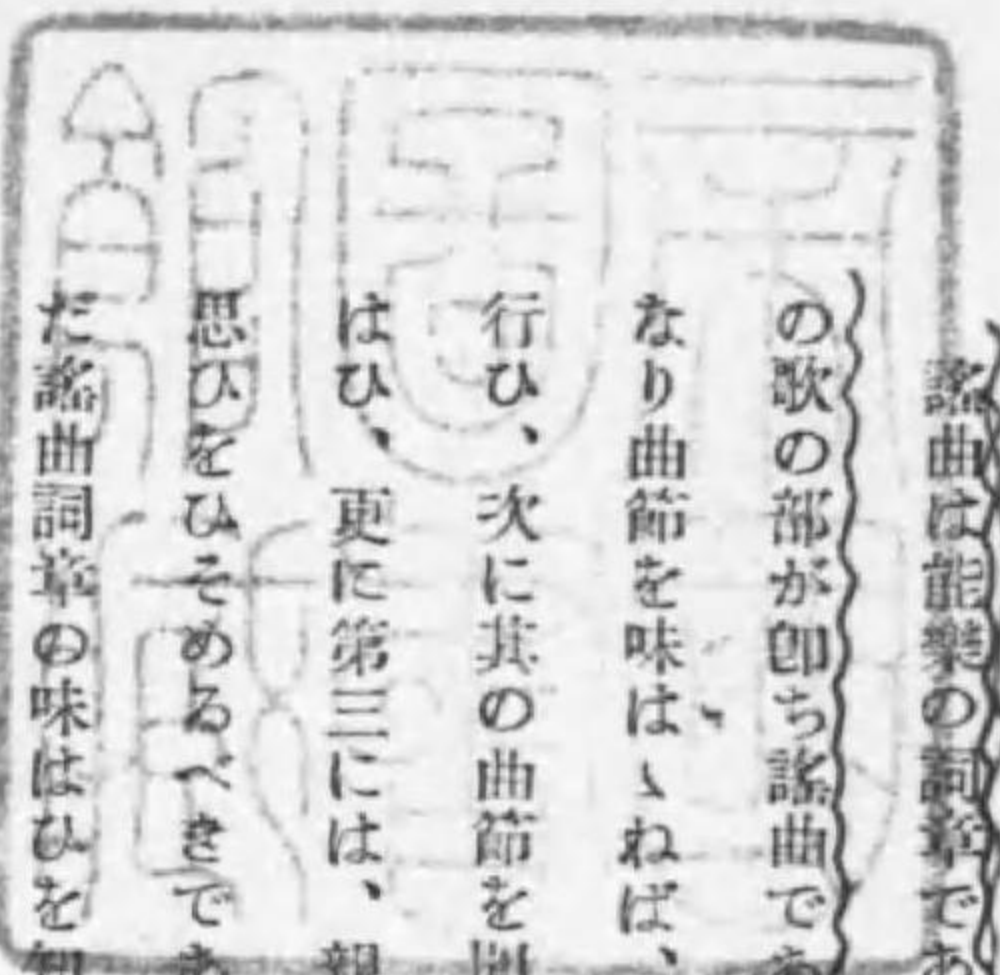 謠曲は能樂の詞章であ
の歌の部が卽ち謠曲であ
なり曲節を味はゝねば、
行ひ、次に其の曲節を
はひ、更に第三には、親
思ひをひそめるべきであ
た謠曲詞章の味はひを知